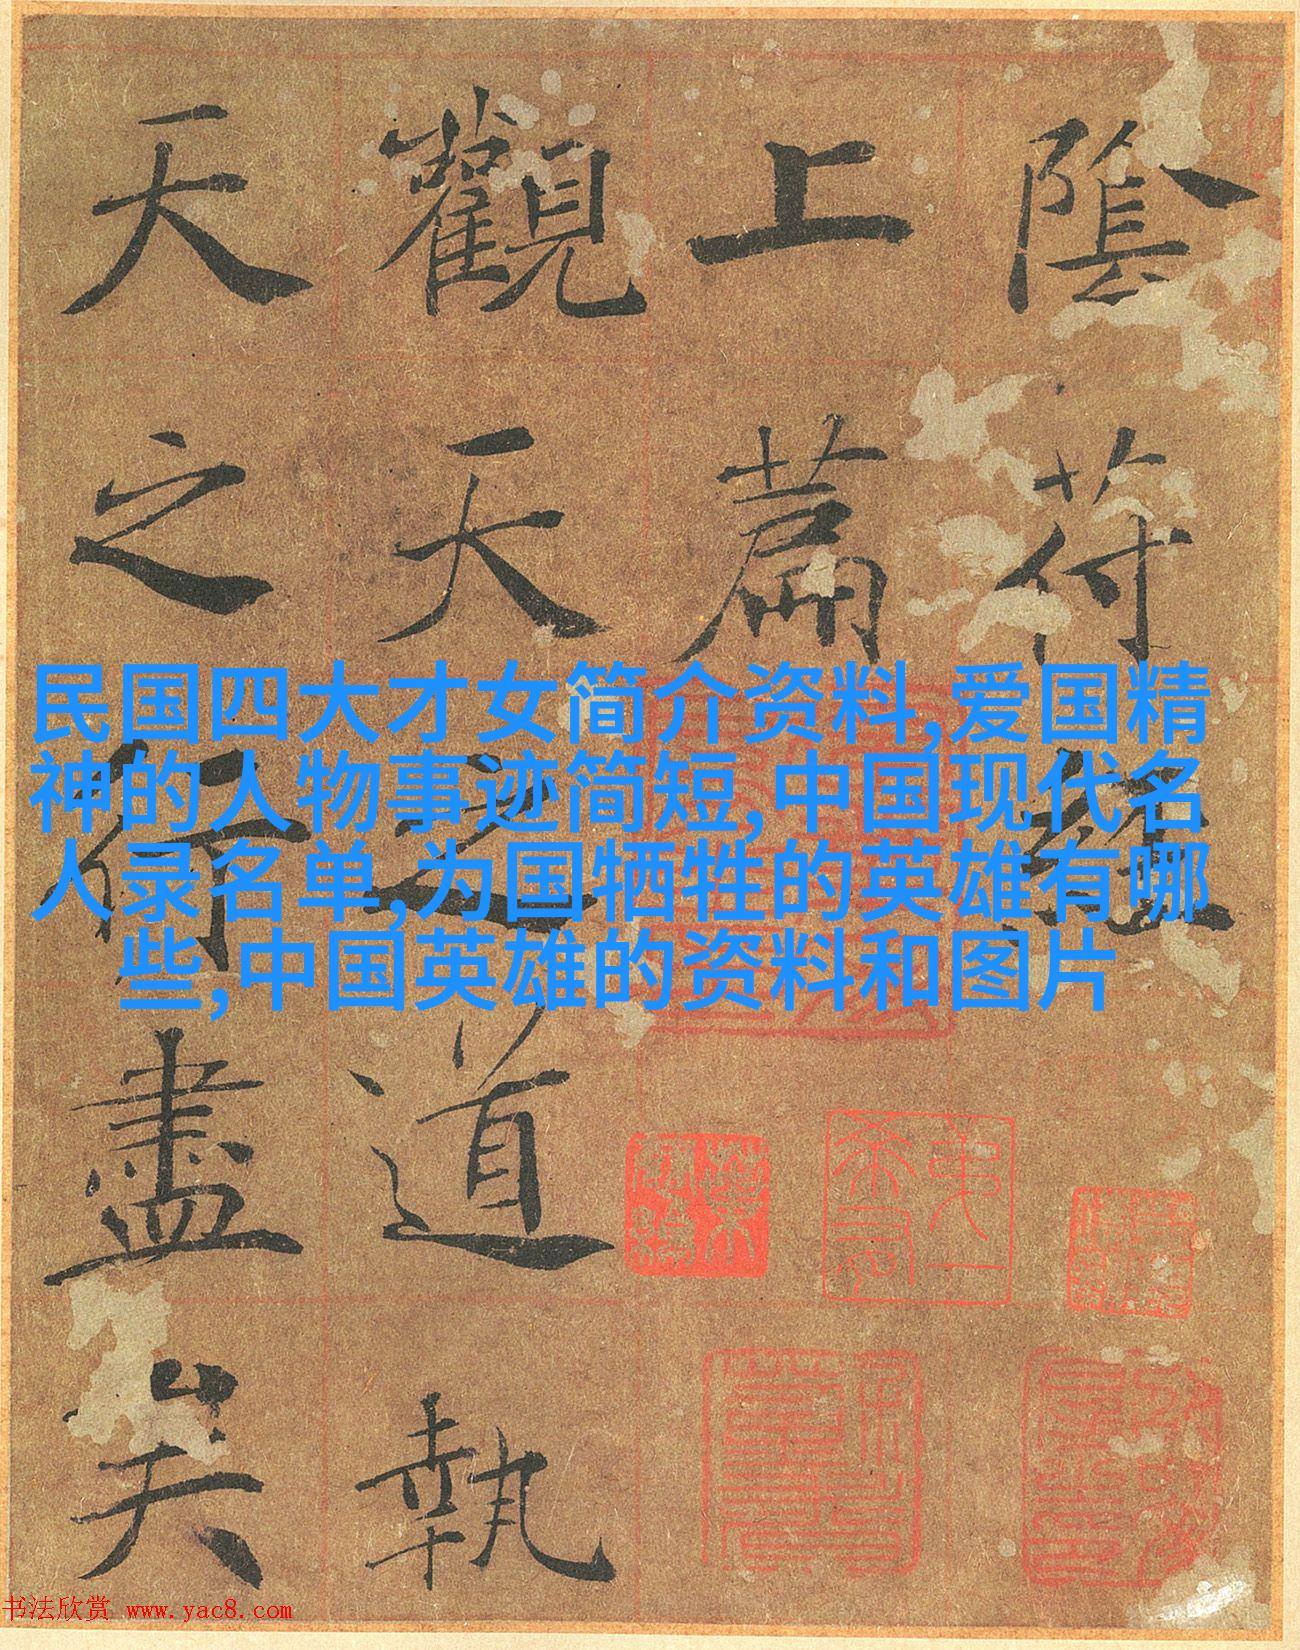 陰符經
上篇
觀天之道執
天之行盡矣
民国四大才女简介资料,爱国精
神的人物事迹简短,中国现代名
人录名单,为国牺牲的英雄有哪
些,中国英雄的资料和图片
书法欣赏 www.yac8.com